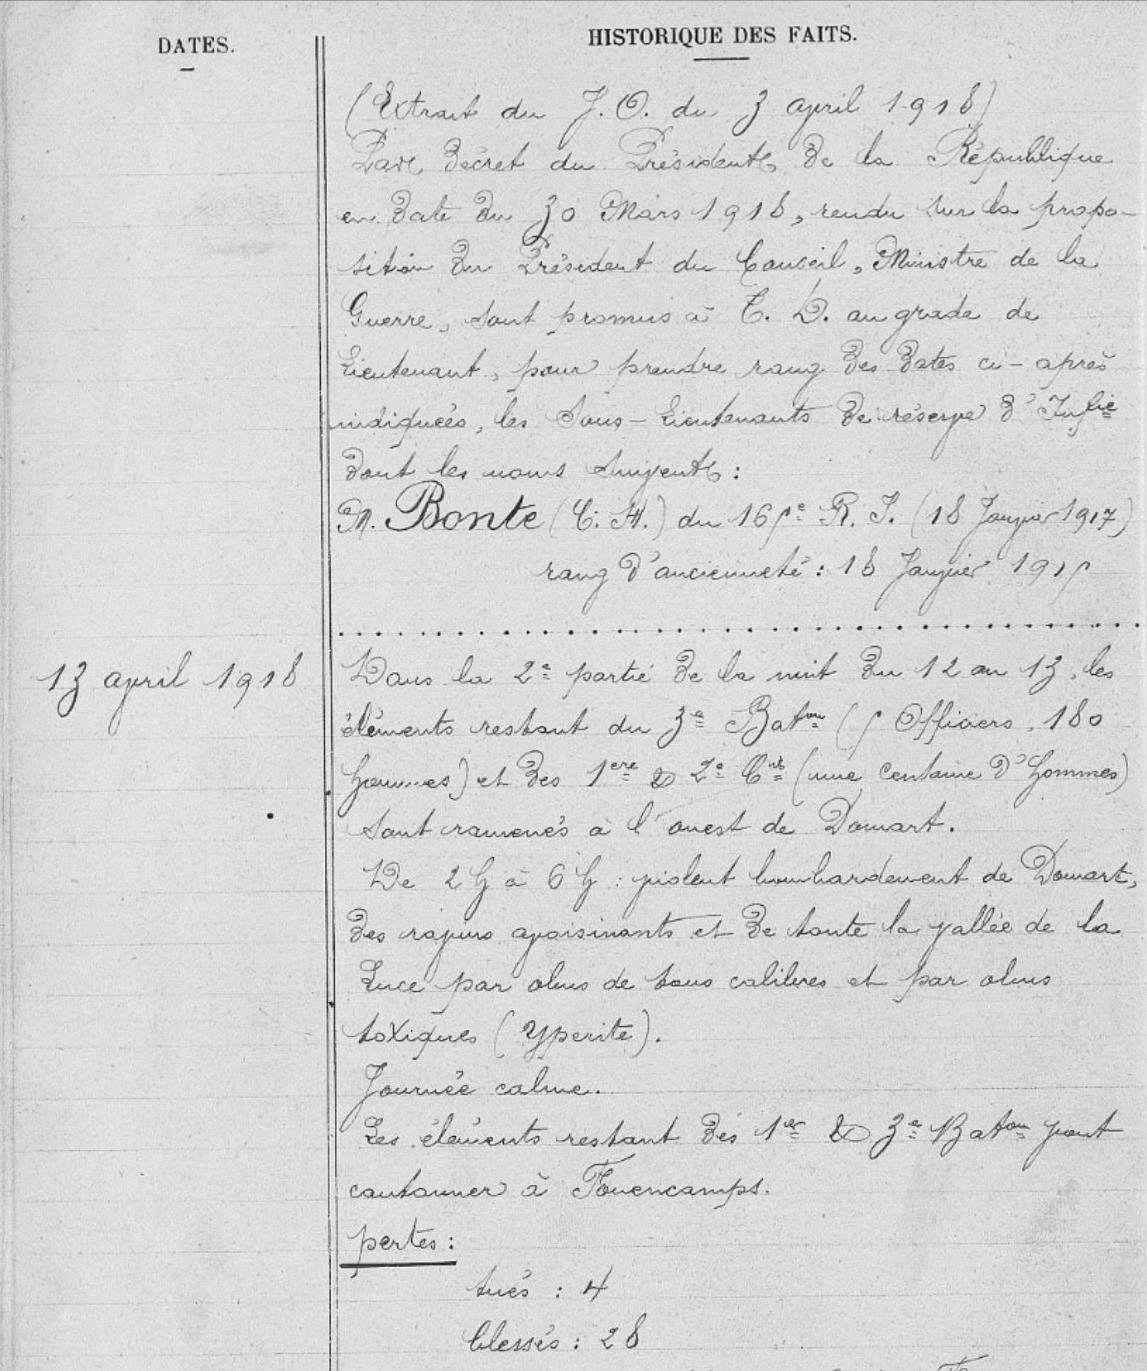 DATES.
HISTORIQUE DES FAITS.
(Extrait du J. O. du 3 april 1918)
Par décret du Président de la République
en date du 30 Mars 1918, rendu sur la propo-
sition du Président du Conseil, Ministre de la
Guerre, sont promus à T. D. au grade de
Lieutenant, pour prendre rang des dates ci-après
indiquées, les Sous-Lieutenants de réserve d'Infie
dont les noms suivent :
M. Bonte (C. H.) du 165e R. I. (18 Janvier 1917)
rang d'ancienneté : 18 Janvier 1915
13 april 1918
Dans la 2e partie de la nuit du 12 au 13, les
éléments restant du 3e Baton (5 Officiers, 180
hommes) et des 1ere & 2e Cies (une centaine d'hommes)
sont ramenés à l'ouest de Domart.
De 2 h à 6 h : violent bombardement de Domart,
des ravins avoisinants et de toute la vallée de la
Luce par obus de tous calibres et par obus
toxiques (Yperite).
Journée calme.
Les éléments restant des 1er & 3e Baton vont
cantonner à Fouencamps.
pertes :
tués : 4
blessés : 28